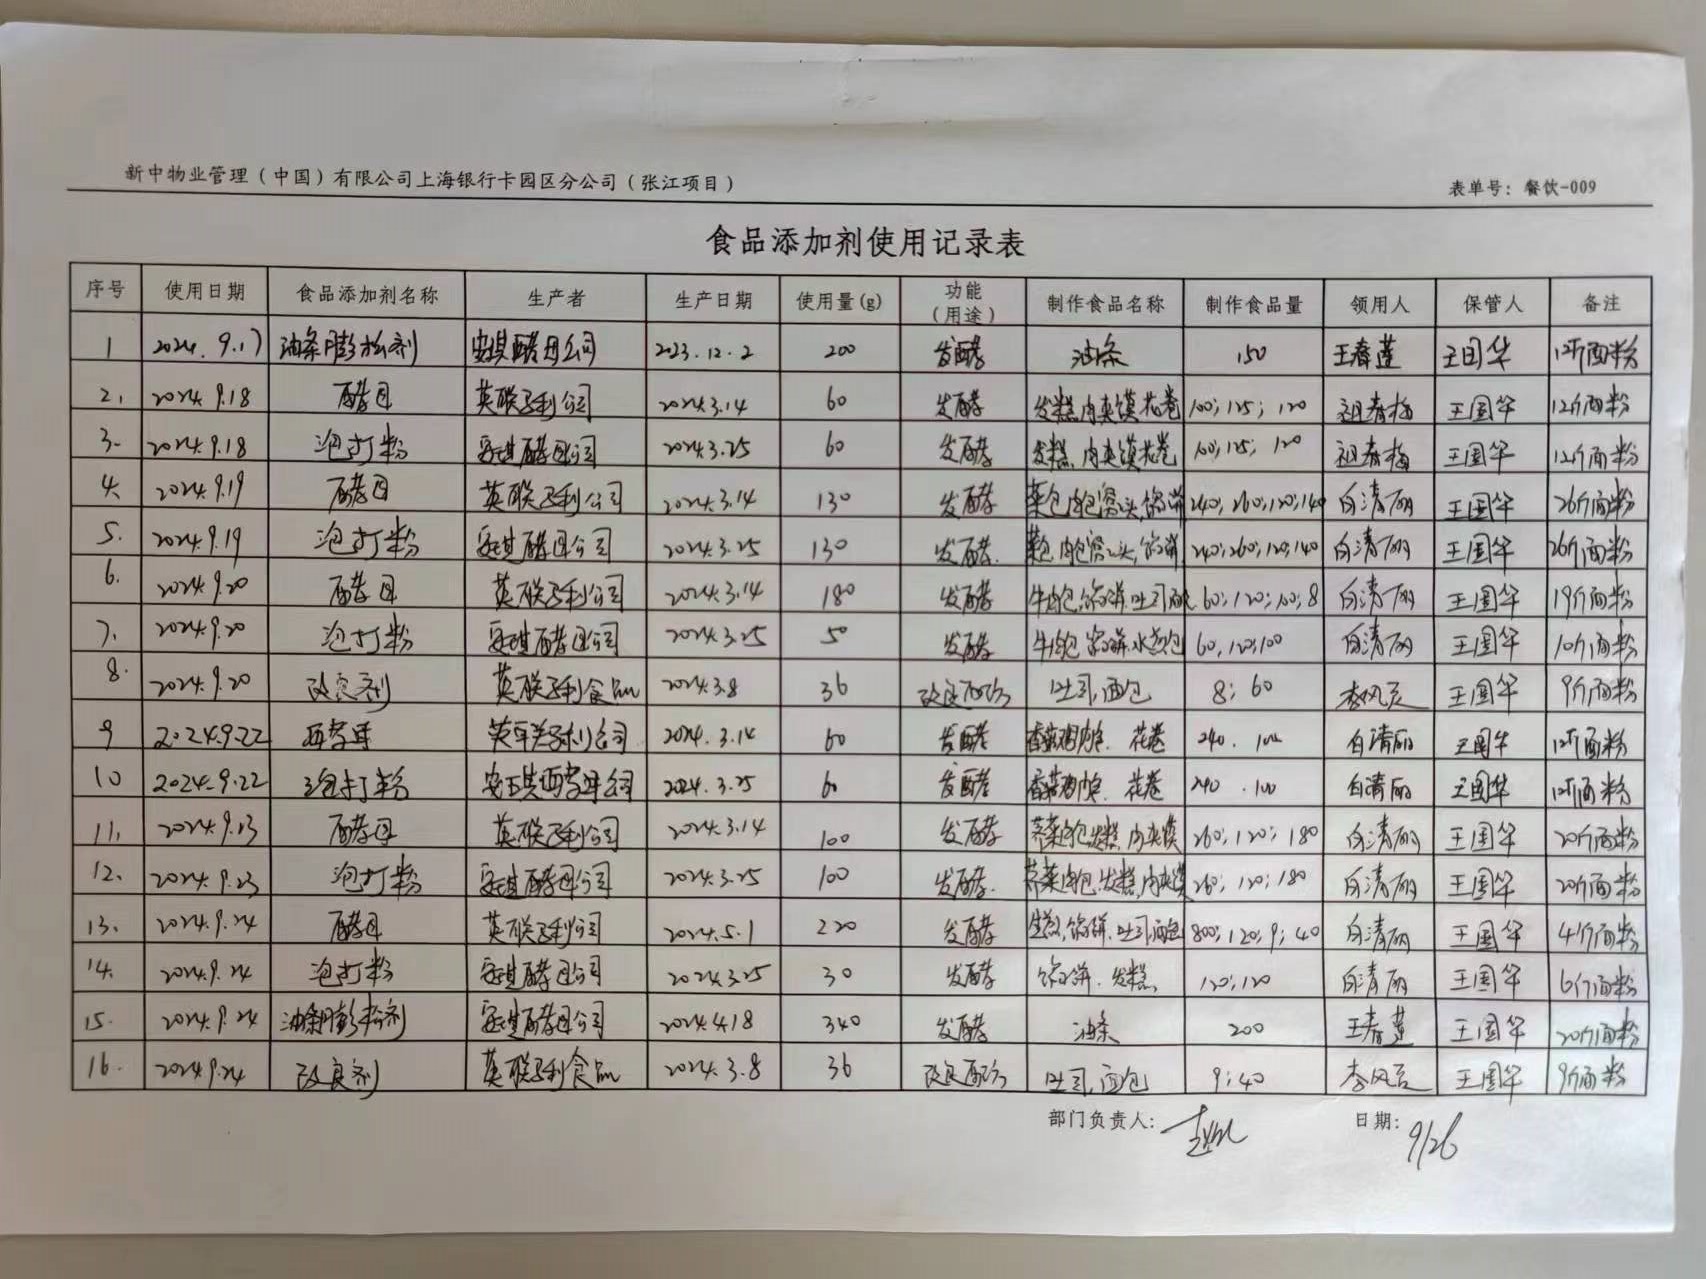 新中物业管理（中国）有限公司上海银行卡园区分公司（张江项目）
表单号：餐饮-009
食品添加剂使用记录表
序号 使用日期 食品添加剂名称 生产者 生产日期 使用量(g) 功能（用途） 制作食品名称 制作食品量 领用人 保管人 备注
1 2024.9.17 油条膨松剂 安琪酵母公司 2023.12.2 200 发酵 油条 150 王春莲 王国华 12斤面粉
2. 2024.9.18 酵母 英联马利公司 2024.3.14 60 发酵 发糕,肉夹馍花卷 100;125;120 祖春梅 王国华 12斤面粉
3. 2024.9.18 泡打粉 安琪酵母公司 2024.3.25 60 发酵 发糕,肉夹馍花卷 100;125;120 祖春梅 王国华 12斤面粉
4. 2024.9.19 酵母 英联马利公司 2024.3.14 130 发酵 菜包,肉包 240;260;120;140 白清丽 王国华 26斤面粉
5. 2024.9.19 泡打粉 安琪酵母公司 2024.3.25 130 发酵. 菜包,肉包 240;260;120;140 白清丽 王国华 26斤面粉
6. 2024.9.20 酵母 英联马利公司 2024.3.14 180 发酵 牛肉包, 吐司 60;120;100;8 白清丽 王国华 19斤面粉
7. 2024.9.20 泡打粉 安琪酵母公司 2024.3.25 50 发酵 牛肉包 水煎包 60,120;100 白清丽 王国华 10斤面粉
8. 2024.9.20 改良剂 英联马利食品 2024.3.8 36 改良 吐司,面包 8;60 李凤 王国华 9斤面粉
9 2024.9.22 酵母 英联马利公司 2024.3.14 60 发酵 香菇鸡肉包. 花卷 240.100 白清丽 王国华 12斤面粉
10 2024.9.22 泡打粉 安琪酵母公司 2024.3.25 60 发酵 香菇鸡肉包. 花卷 240.100 白清丽 王国华 12斤面粉
11. 2024.9.23 酵母 英联马利公司 2024.3.14 100 发酵 荠菜肉包,发糕,肉夹馍 260;120;180 白清丽 王国华 20斤面粉
12. 2024.9.23 泡打粉 安琪酵母公司 2024.3.25 100 发酵. 荠菜肉包,发糕,肉夹馍 260;120;180 白清丽 王国华 20斤面粉
13. 2024.9.24 酵母 英联马利公司 2024.5.1 220 发酵 生煎, 吐司,面包 800;120;9;40 白清丽 王国华 41斤面粉
14. 2024.9.24 泡打粉 安琪酵母公司 2024.3.25 30 发酵 发糕 120;120 白清丽 王国华 6斤面粉
15. 2024.9.24 油条膨松剂 安琪酵母公司 2024.4.18 340 发酵 油条 200 王春莲 王国华 20斤面粉
16. 2024.9.24 改良剂 英联马利食品 2024.3.8 36 改良 吐司,面包 9;40 李凤 王国华 9斤面粉
部门负责人: 日期: 9/26